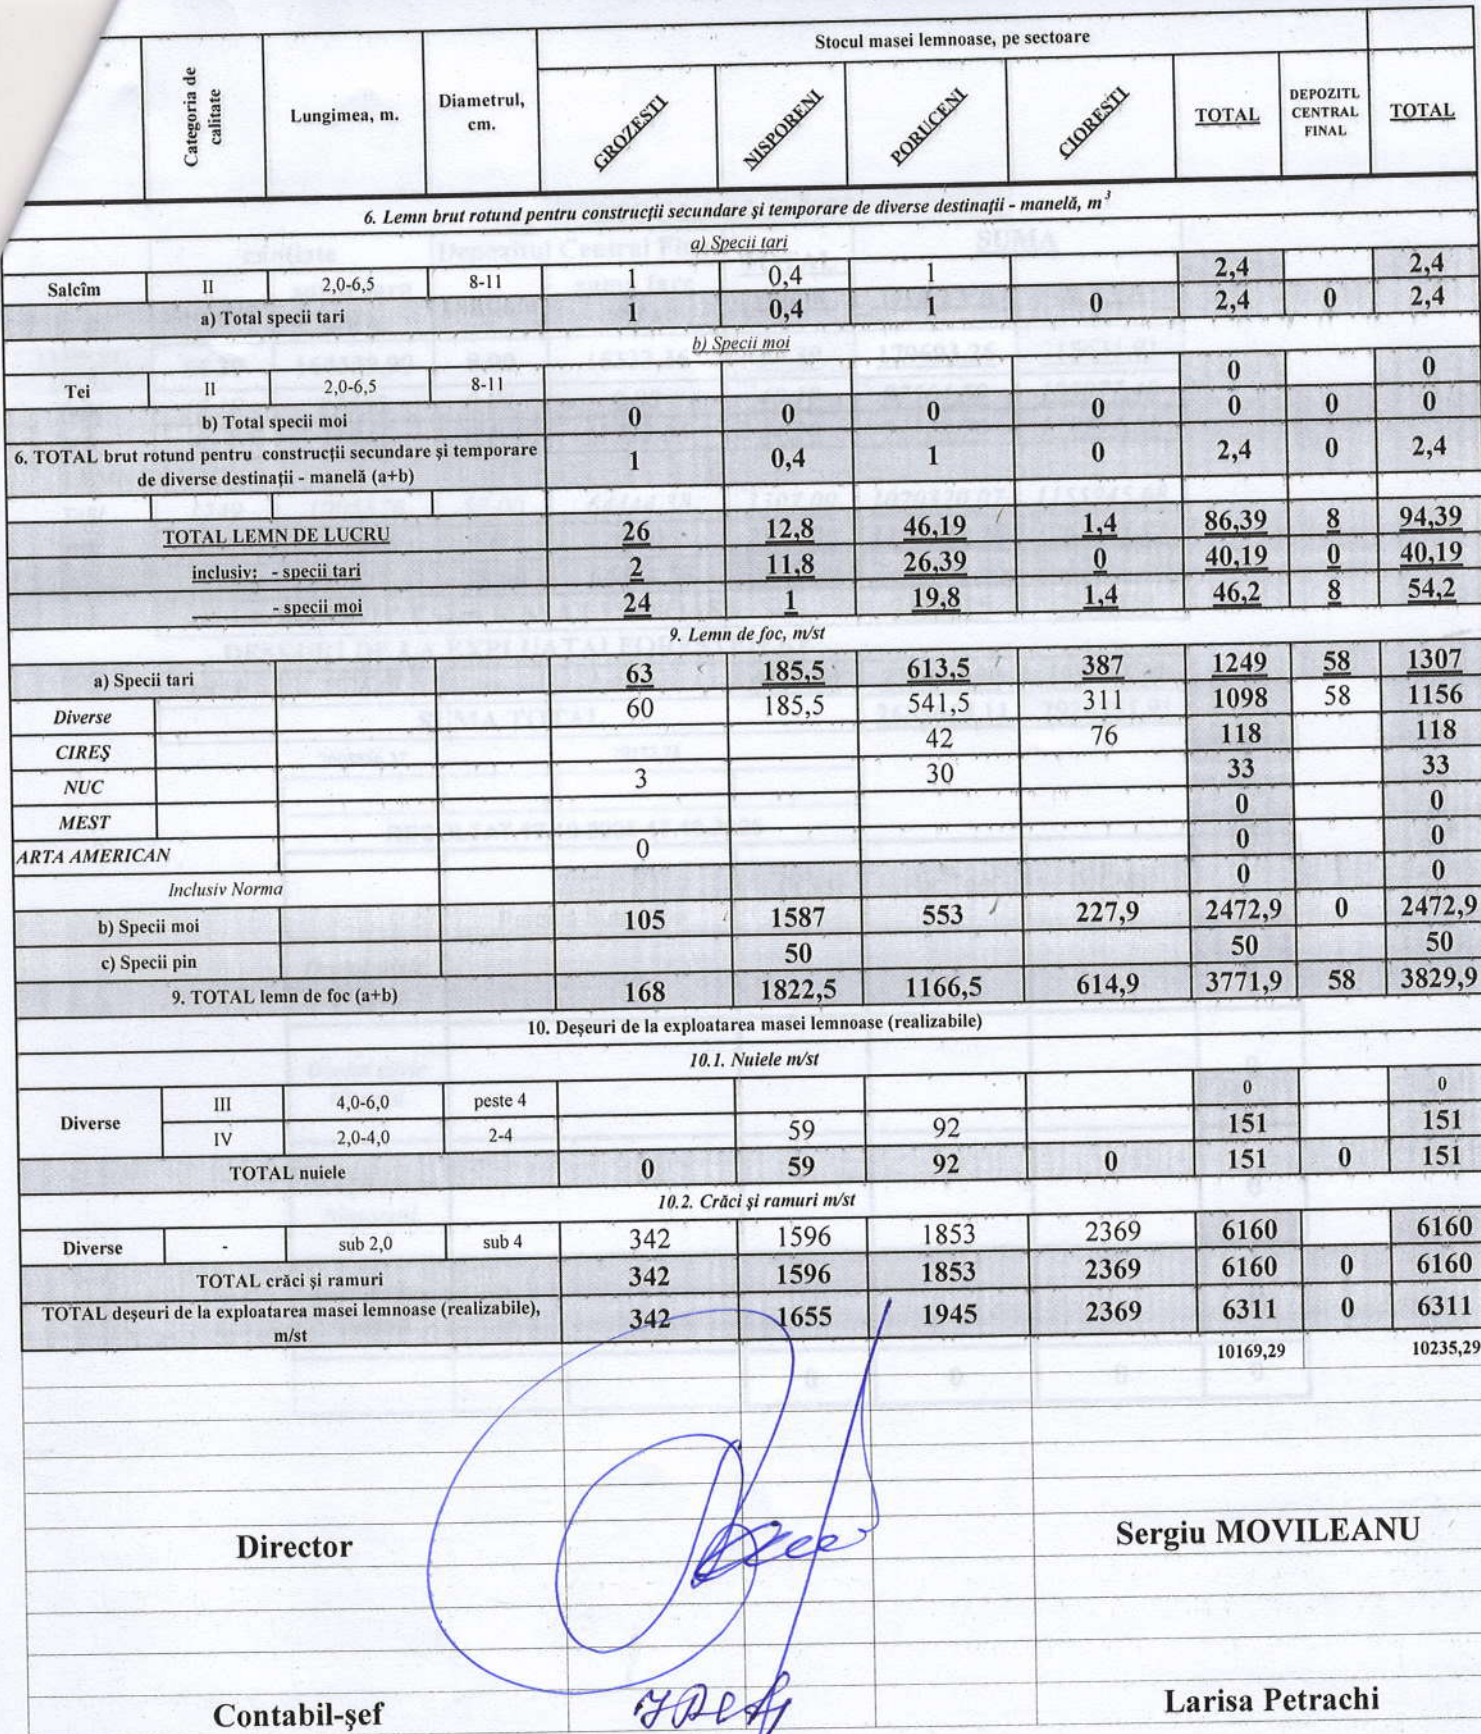 Categoria de calitate Lungimea, m. Diametrul, cm. Stocul masei lemnoase, pe sectoare
GROZESTI NISPORENI PORUCENI CIORESTI TOTAL DEPOZITL CENTRAL FINAL TOTAL
6. Lemn brut rotund pentru construcţii secundare şi temporare de diverse destinaţii - manelă, m³
a) Specii tari
Salcîm II 2,0-6,5 8-11 1 0,4 1 2,4 2,4
a) Total specii tari 1 0,4 1 0 2,4 0 2,4
b) Specii moi
Tei II 2,0-6,5 8-11 0 0
b) Total specii moi 0 0 0 0 0 0 0
6. TOTAL brut rotund pentru construcţii secundare şi temporare
de diverse destinaţii - manelă (a+b) 1 0,4 1 0 2,4 0 2,4
TOTAL LEMN DE LUCRU 26 12,8 46,19 1,4 86,39 8 94,39
inclusiv: - specii tari 2 11,8 26,39 0 40,19 0 40,19
- specii moi 24 1 19,8 1,4 46,2 8 54,2
9. Lemn de foc, m/st
a) Specii tari 63 185,5 613,5 387 1249 58 1307
Diverse 60 185,5 541,5 311 1098 58 1156
CIREŞ 42 76 118 118
NUC 3 30 33 33
MEST 0 0
ARTA AMERICAN 0 0 0
Inclusiv Norma 0 0
b) Specii moi 105 1587 553 227,9 2472,9 0 2472,9
c) Specii pin 50 50 50
9. TOTAL lemn de foc (a+b) 168 1822,5 1166,5 614,9 3771,9 58 3829,9
10. Deşeuri de la exploatarea masei lemnoase (realizabile)
10.1. Nuiele m/st
Diverse III 4,0-6,0 peste 4 0 0
IV 2,0-4,0 2-4 59 92 151 151
TOTAL nuiele 0 59 92 0 151 0 151
10.2. Crăci şi ramuri m/st
Diverse - sub 2,0 sub 4 342 1596 1853 2369 6160 6160
TOTAL crăci şi ramuri 342 1596 1853 2369 6160 0 6160
TOTAL deşeuri de la exploatarea masei lemnoase (realizabile),
m/st 342 1655 1945 2369 6311 0 6311
10169,29 10235,29
Director Sergiu MOVILEANU
Contabil-şef Larisa Petrachi